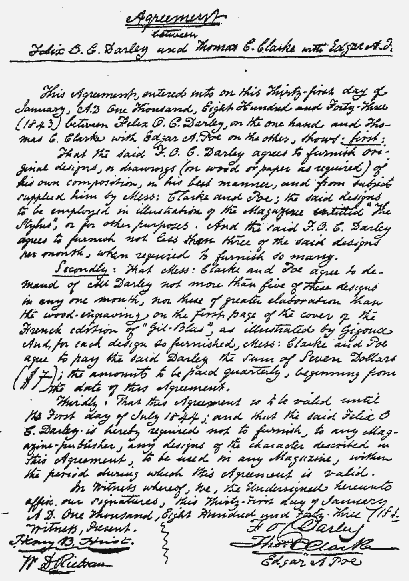 Agreement
between
Felix O. C. Darley and Thomas C. Clarke with Edgar A. P.
This Agreement, entered into on this Thirty-first day of
January, A.D. One Thousand, Eight Hundred and Forty-three
(1843) between Felix O. C. Darley, on the one hand and Tho-
mas C. Clarke with Edgar A. Poe on the other, shows: first;
That the said F. O. C. Darley agrees to furnish ori-
ginal designs, or drawings (on wood or paper as required) of
his own composition, in his best manner, and from subjects
supplied him by Mess: Clarke and Poe; the said designs
to be employed in illustration of the Magazine entitled "The
Stylus", or for other purposes. And the said F. O. C. Darley
agrees to furnish not less than three of the said designs
per month, when required to furnish so many.
Secondly: That Mess: Clarke and Poe agree to de-
mand of Mr Darley not more than five of these designs
in any one month, nor these of greater elaboration than
the wood-engraving, on the first page of the cover of the
French edition of "Gil-Blas", as illustrated by Gigoux
And, for each design so furnished, Mess: Clarke and Poe
agree to pay the said Darley the sum of Seven Dollars
($7); the amounts to be paid quarterly, beginning from
the date of this Agreement.
Thirdly: That this Agreement is to be valid until
the First day of July 1844; and that the said Felix O
C. Darley is hereby required not to furnish, to any Mag-
azine-publisher, any designs of the character described in
this Agreement, to be used in any Magazine, within
the period during which this Agreement is valid.
In Witness whereof, we, the Undersigned hereunto
affix our signatures, this Thirty-First day of January
A.D. One Thousand, Eight Hundred and Forty-three (184
Witness, Present.
F O C Darley
Henry B. Hirst
Thos C Clarke
Edgar A Poe